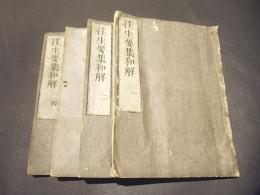 往生要集和解 一
往生要集和解 二
往生要集和解 四